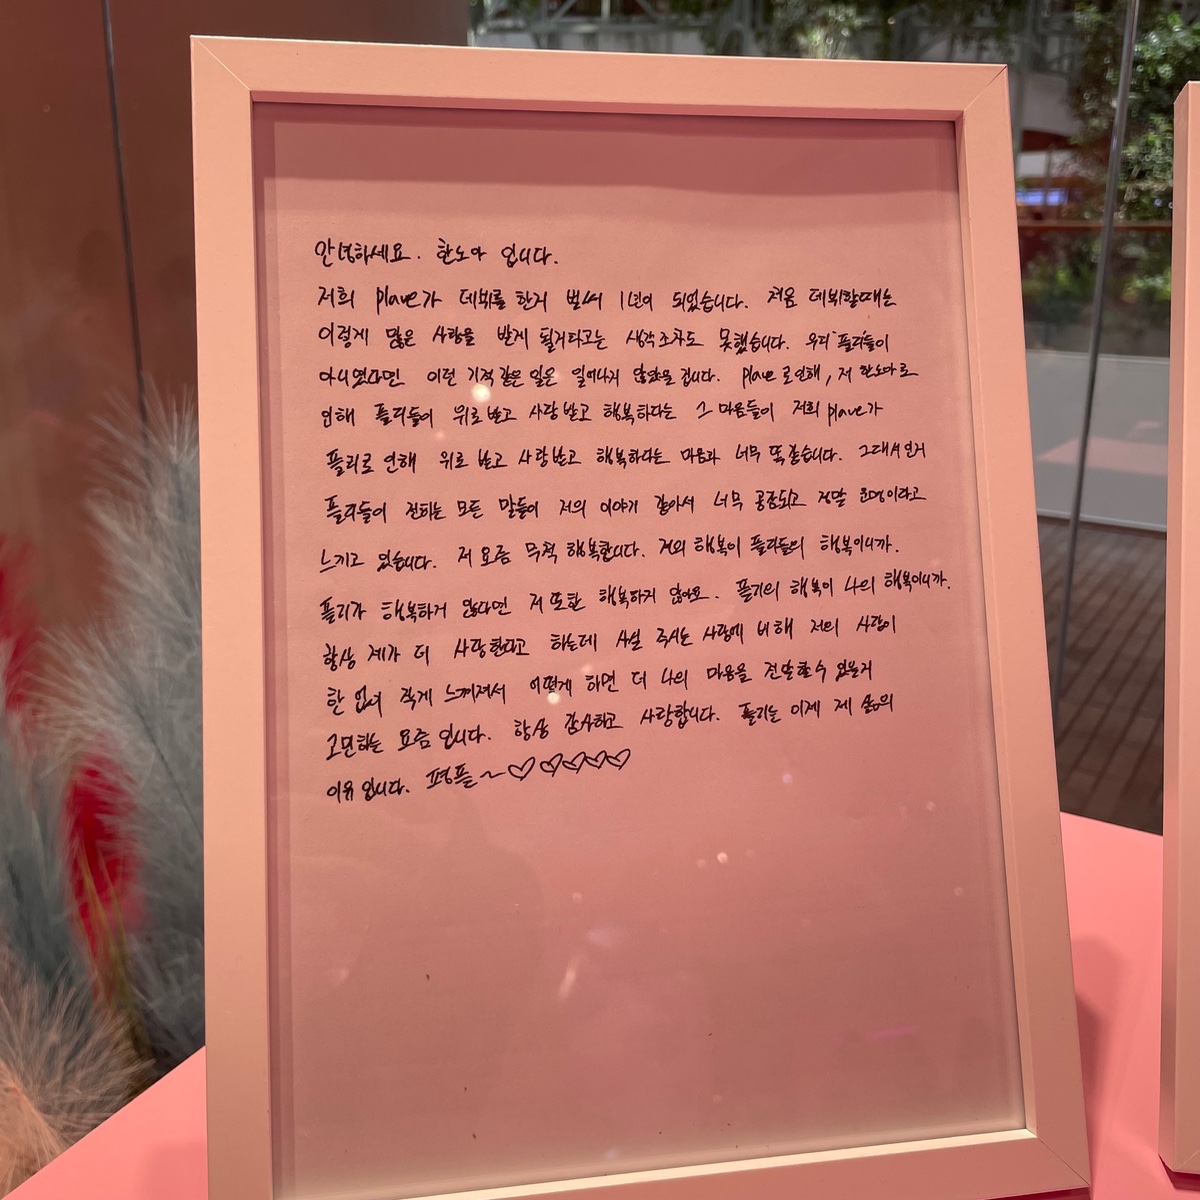 안녕하세요. 한노아 입니다.
저희 plave가 데뷔를 한지 벌써 1년이 되었습니다. 처음 데뷔할때는
이렇게 많은 사랑을 받게 될거라고는 생각조차도 못했습니다. 우리 플리들이
아니였다면 이런 기적같은 일은 일어나지 않았을 겁니다. plave로인해, 저 한노아로
인해 플리들이 위로받고 사랑받고 행복하다는 그 마음들이 저희 plave가
플리로 인해 위로 받고 사랑받고 행복하다는 마음과 너무 똑같습니다. 그래서인지
플리들이 전하는 모든 말들이 저의 이야기 같아서 너무 공감되고 정말 운명이라고
느끼고 있습니다. 저 요즘 무척 행복합니다. 저의 행복이 플리들의 행복이니까.
플리가 행복하지 않다면 저 또한 행복하지 않아요. 플리의 행복이 나의 행복이니까.
항상 제가 더 사랑한다고 하는데 사실 주시는 사랑에 비해 저의 사랑이
한 없이 작게 느껴져서 어떻게 하면 더 나의 마음을 전달할수 있는지
고민하는 요즘입니다. 항상 감사하고 사랑합니다. 플리는 이제 제 삶의
이유 입니다. 평플~♡♡♡♡♡